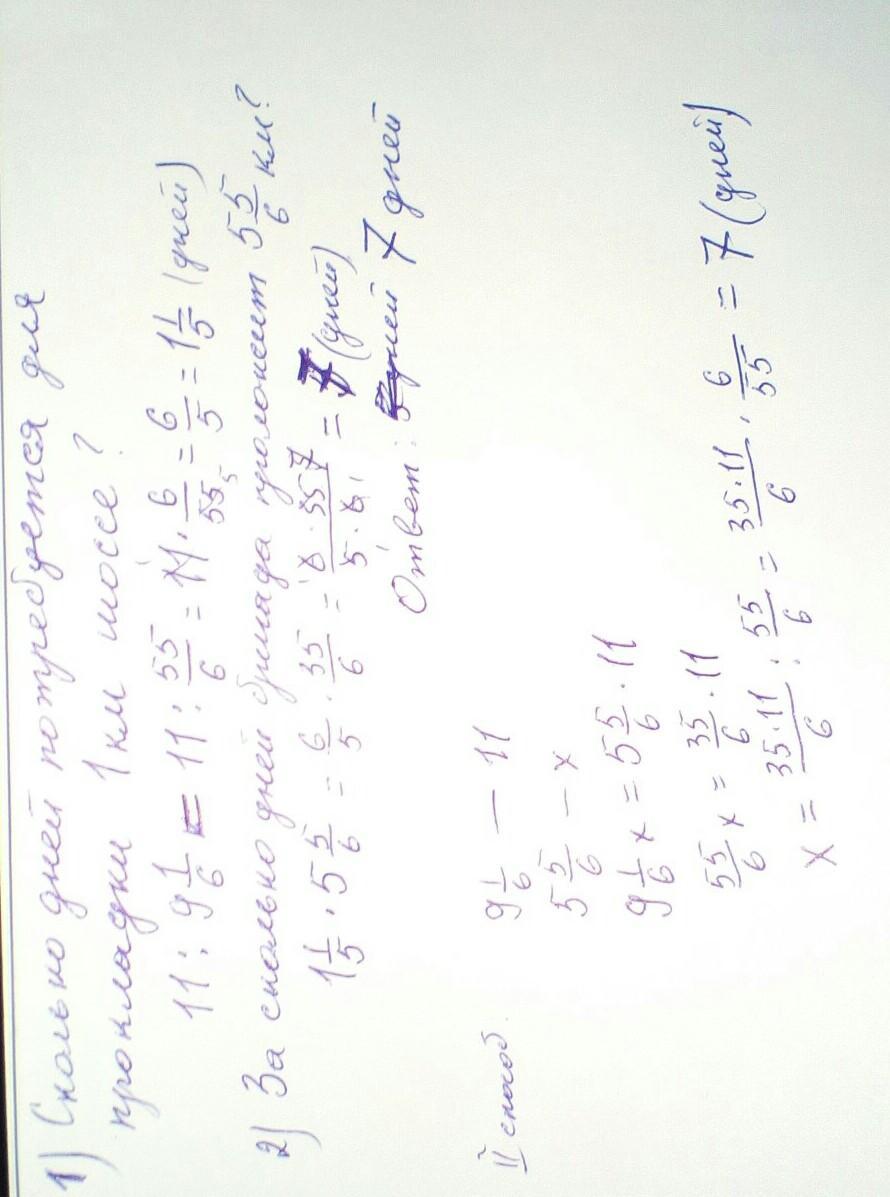 1) Сколько дней потребуется для
прокладки 1 км шоссе?
11 : 9 1/6 = 11 : 55/6 = 11 · 6/55 5 = 6/5 = 1 1/5 (дней)
2) За сколько дней бригада проложит 5 5/6 км?
1 1/5 · 5 5/6 = 6/5 · 35/6 = 1 6 · 35 7 / 5 · 6 1 = 7 (дней)
Ответ: 7 дней
II способ.
9 1/6 — 11
5 5/6 — x
9 1/6 x = 5 5/6 · 11
55/6 x = 35/6 · 11
x = 35·11/6 : 55/6 = 35·11/6 · 6/55 = 7 (дней)